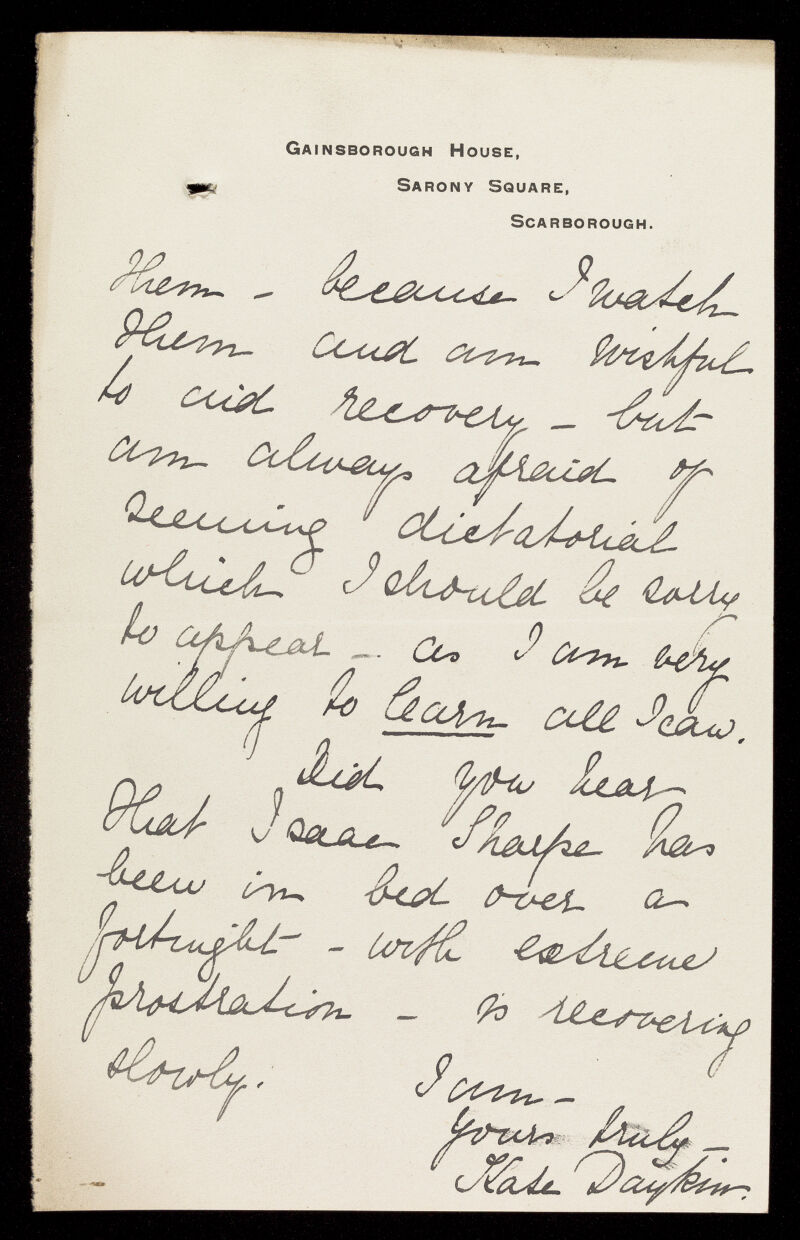 GAINSBOROUGH HOUSE,
SARONY SQUARE,
SCARBOROUGH.
them - because I watch
them and am wishful
to aid recovery - but
am always afraid of
seeming dictatorial
which I should be sorry
to appear - as I am very
willing to learn all I can.
Did you hear
that Isaac Sharpe has
been in bed over a
fortnight - with extreme
prostration - is recovering
slowly.
I am -
Yours truly -
Kate Daykin.